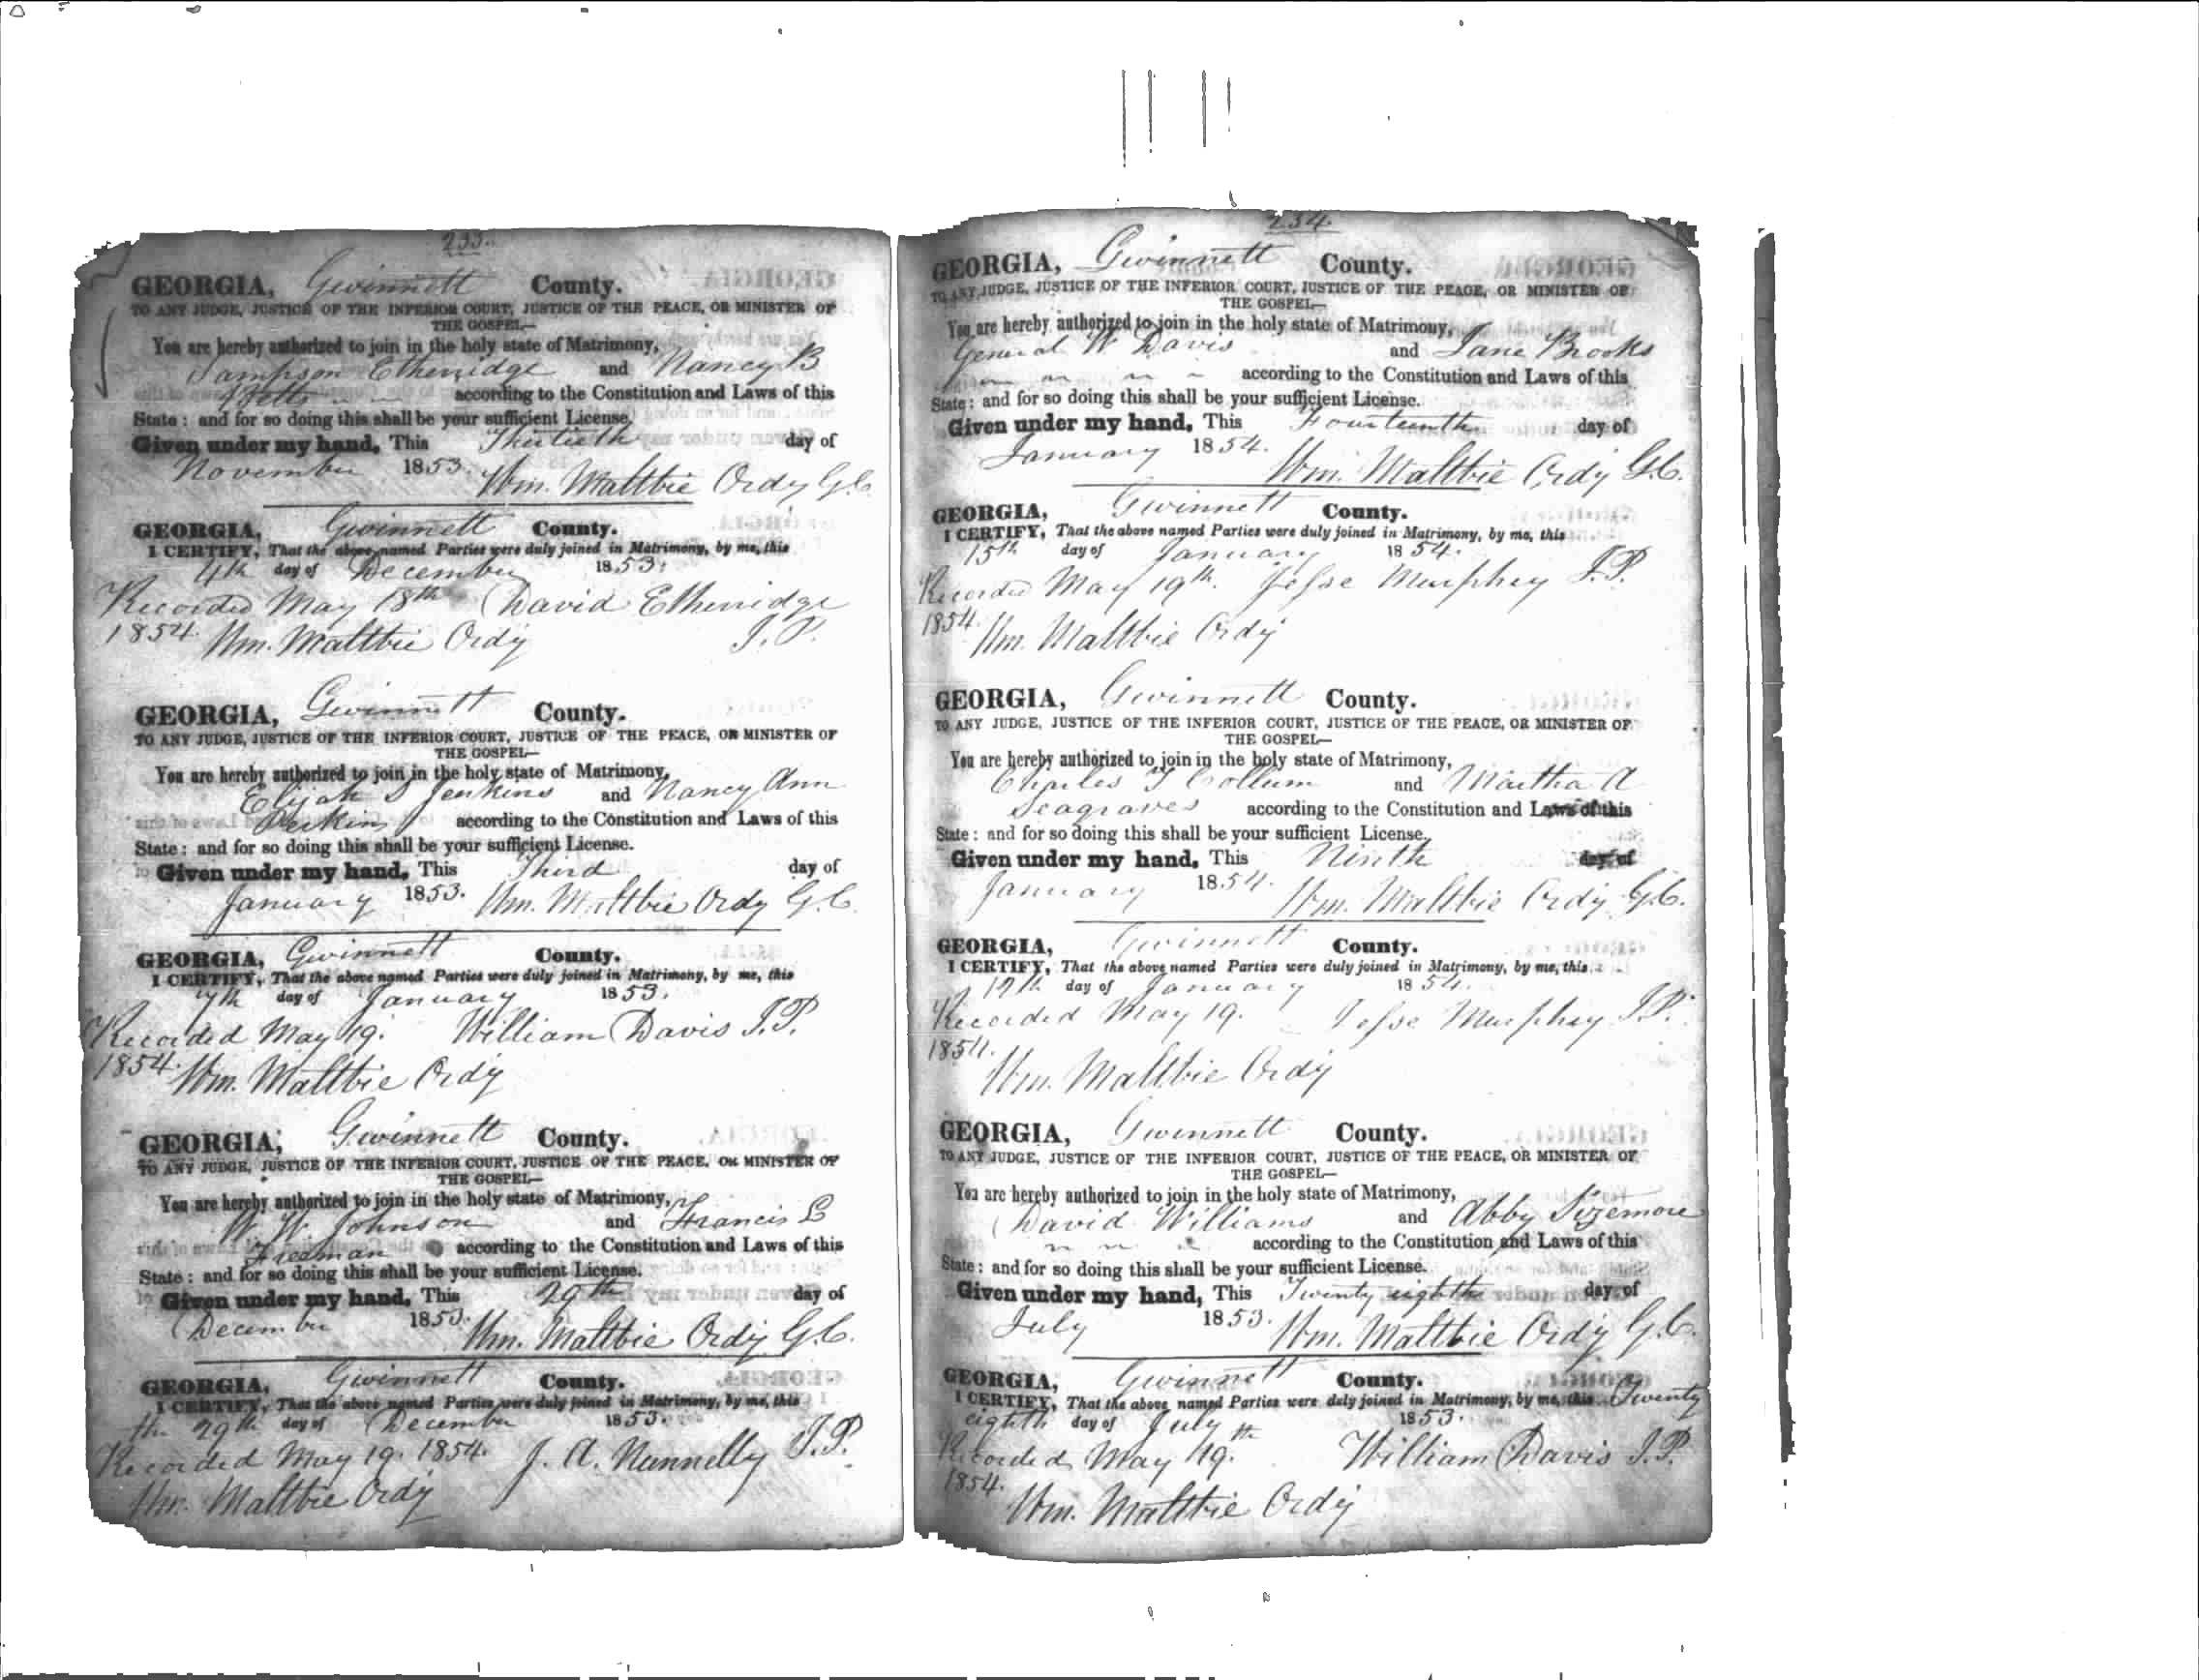 233.
GEORGIA, Gwinnett County.
TO ANY JUDGE, JUSTICE OF THE INFERIOR COURT, JUSTICE OF THE PEACE, OR MINISTER OF
THE GOSPEL—
You are hereby authorized to join in the holy state of Matrimony,
Sampson Etheridge and Nancy B
according to the Constitution and Laws of this
State : and for so doing this shall be your sufficient License.
Given under my hand, This Thirtieth day of
November 1853. Wm. Maltbie Ordy G.C.
GEORGIA, Gwinnett County.
I CERTIFY, That the above named Parties were duly joined in Matrimony, by me, this
4th day of December 1853.
Recorded May 18th David Etheridge
1854. Wm. Maltbie Ordy J.P.
GEORGIA, Gwinnett County.
TO ANY JUDGE, JUSTICE OF THE INFERIOR COURT, JUSTICE OF THE PEACE, OR MINISTER OF
THE GOSPEL—
You are hereby authorized to join in the holy state of Matrimony,
Elijah S Jenkins and Nancy Ann
Perkins according to the Constitution and Laws of this
State : and for so doing this shall be your sufficient License.
Given under my hand, This Third day of
January 1853. Wm. Maltbie Ordy G.C.
GEORGIA, Gwinnett County.
I CERTIFY, That the above named Parties were duly joined in Matrimony, by me, this
7th day of January 1853.
Recorded May 19. William Davis J.P.
1854. Wm. Maltbie Ordy
GEORGIA, Gwinnett County.
TO ANY JUDGE, JUSTICE OF THE INFERIOR COURT, JUSTICE OF THE PEACE, OR MINISTER OF
THE GOSPEL—
You are hereby authorized to join in the holy state of Matrimony,
W. W. Johnson and Francis L
Freeman according to the Constitution and Laws of this
State : and for so doing this shall be your sufficient License.
Given under my hand, This 29th day of
December 1853. Wm. Maltbie Ordy G.C.
GEORGIA, Gwinnett County.
I CERTIFY, That the above named Parties were duly joined in Matrimony, by me, this
the 29th day of December 1853.
Recorded May 19. 1854. J. A. Nunnelly J.P.
Wm. Maltbie Ordy
234.
GEORGIA, Gwinnett County.
TO ANY JUDGE, JUSTICE OF THE INFERIOR COURT, JUSTICE OF THE PEACE, OR MINISTER OF
THE GOSPEL—
You are hereby authorized to join in the holy state of Matrimony,
General W Davis and Jane Brooks
according to the Constitution and Laws of this
State : and for so doing this shall be your sufficient License.
Given under my hand, This Fourteenth day of
January 1854. Wm. Maltbie Ordy G.C.
GEORGIA, Gwinnett County.
I CERTIFY, That the above named Parties were duly joined in Matrimony, by me, this
15th day of January 1854.
Recorded May 19th. Jesse Murphey J.P.
1854. Wm. Maltbie Ordy
GEORGIA, Gwinnett County.
TO ANY JUDGE, JUSTICE OF THE INFERIOR COURT, JUSTICE OF THE PEACE, OR MINISTER OF
THE GOSPEL—
You are hereby authorized to join in the holy state of Matrimony,
Charles T Collum and Martha A
Seagraves according to the Constitution and Laws of this
State : and for so doing this shall be your sufficient License.
Given under my hand, This Ninth day of
January 1854. Wm. Maltbie Ordy G.C.
GEORGIA, Gwinnett County.
I CERTIFY, That the above named Parties were duly joined in Matrimony, by me, this
day of January 1854.
Recorded May 19. Jesse Murphey J.P.
1854. Wm. Maltbie Ordy
GEORGIA, Gwinnett County.
TO ANY JUDGE, JUSTICE OF THE INFERIOR COURT, JUSTICE OF THE PEACE, OR MINISTER OF
THE GOSPEL—
You are hereby authorized to join in the holy state of Matrimony,
David Williams and Abby Sizemore
according to the Constitution and Laws of this
State : and for so doing this shall be your sufficient License.
Given under my hand, This Twenty eighth day of
July 1853. Wm. Maltbie Ordy G.C.
GEORGIA, Gwinnett County.
I CERTIFY, That the above named Parties were duly joined in Matrimony, by me, this Twenty
eighth day of July 1853.
Recorded May 19th. William Davis J.P.
1854. Wm. Maltbie Ordy